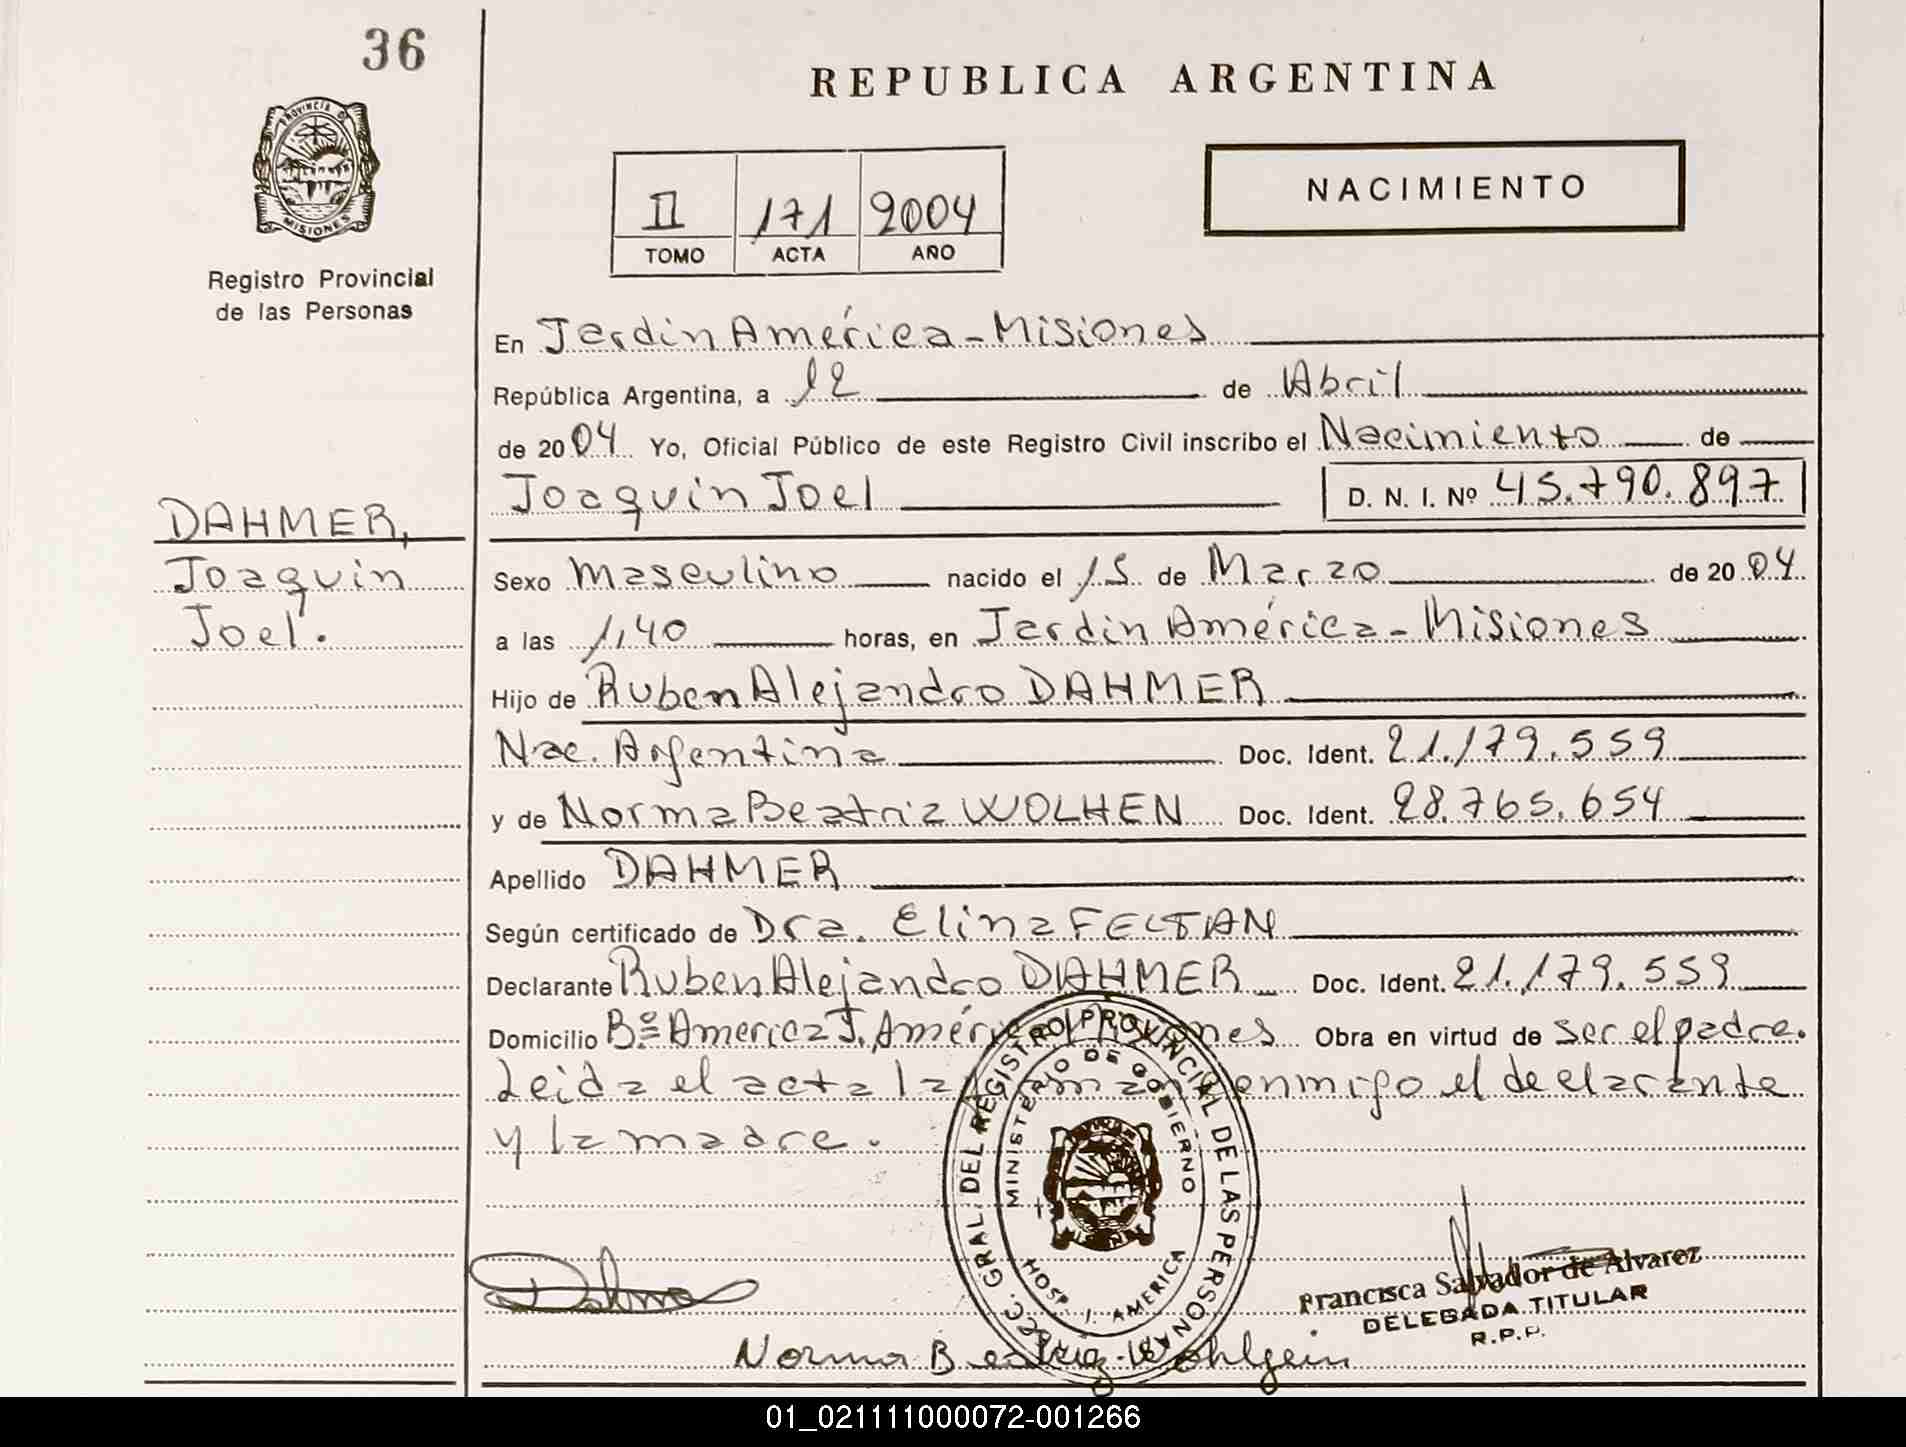 36
PROVINCIA DE
MISIONES
Registro Provincial
de las Personas
DAHMER,
Joaquin
Joel.
REPUBLICA ARGENTINA
II 171 2004
TOMO ACTA AÑO
NACIMIENTO
En Jardín América - Misiones
República Argentina, a 12 de Abril
de 2004 Yo, Oficial Público de este Registro Civil inscribo el Nacimiento de
Joaquin Joel D. N. I. Nº 45.790.897
Sexo masculino nacido el 15 de Marzo de 2004
a las 1,40 horas, en Jardín América - Misiones
Hijo de Ruben Alejandro DAHMER
Nac. Argentina Doc. Ident. 21.179.559
y de Norma Beatriz WOLHEN Doc. Ident. 28.765.654
Apellido DAHMER
Según certificado de Dra. Elina
Declarante Ruben Alejandro DAHMER Doc. Ident. 21.179.559
Domicilio Bº America J. América Misiones Obra en virtud de ser el padre.
Leida el acta la conmigo el declarante
y la madre.
DIRECC. GRAL. DEL REGISTRO PROVINCIAL DE LAS PERSONAS
MINISTERIO DE GOBIERNO
HOSP. J. AMERICA
Francisca Salvador de Alvarez
DELEGADA TITULAR
R.P.P.
Norma Beatriz Wohlgein
01_021111000072-001266